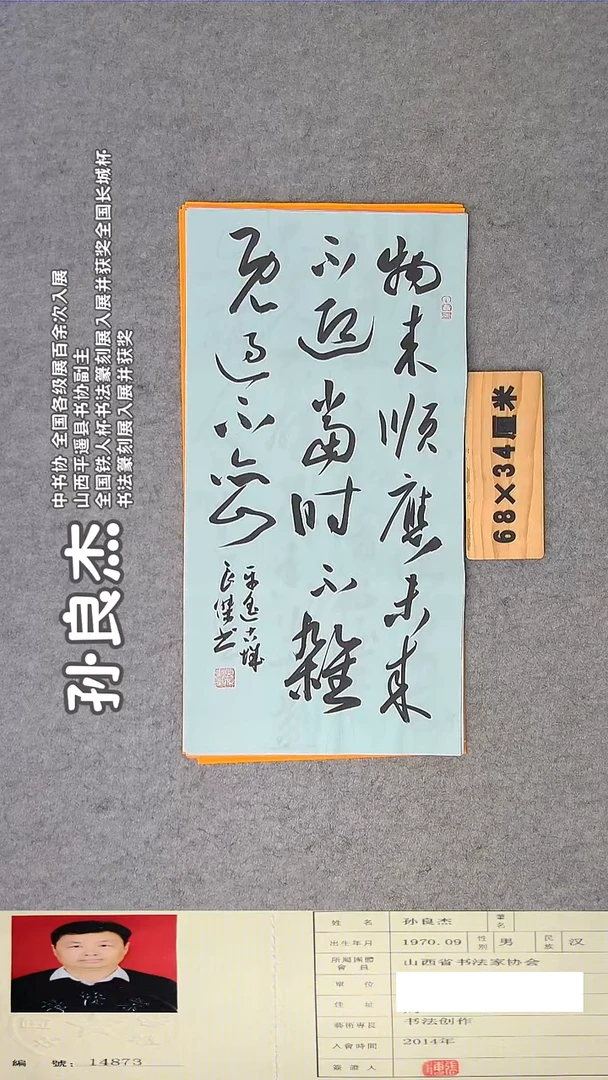 物来顺應未来
不迎当时不雜
既过不恋
平遥古城
良杰书
68×34厘米
孙良杰
中书协 全国各级展百余次入展
山西平遥县书协副主
全国铁人杯书法篆刻展入展并获奖全国长城杯
书法篆刻展入展并获奖
姓名 孙良杰 筆名
出生年月 1970.09 性别 男 民族 汉
所屬團體會員 山西省书法家协会
單位
住址
藝術專長 书法创作
入會時間 2014年
簽證人
編號：14873